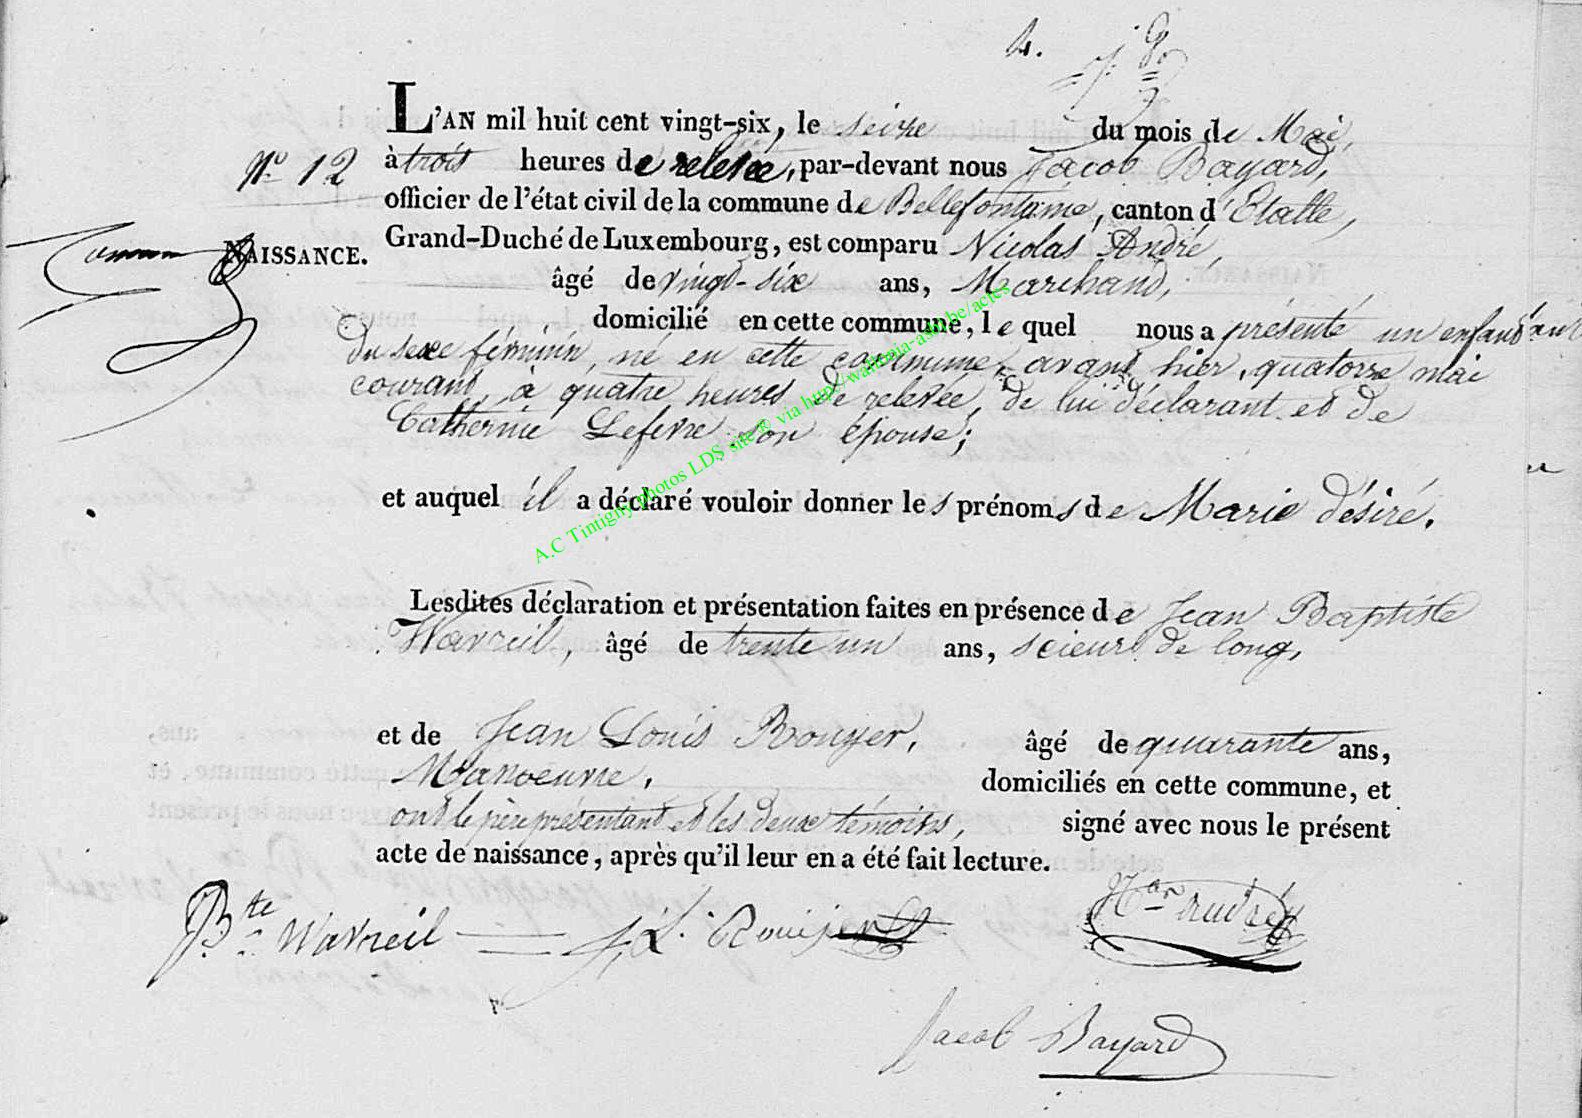 4.
L'AN mil huit cent vingt-six, le seize du mois de Mai,
N.o 12
à trois heures de relevée, par-devant nous Jacob Bayard,
officier de l'état civil de la commune de Bellefontaine, canton d'Etalle,
NAISSANCE.
Grand-Duché de Luxembourg, est comparu Nicolas André,
âgé de vingt-six ans, Marchand,
domicilié en cette commune, le quel nous a présenté un enfant
du sexe féminin, né en cette commune, avant hier, quatorze mai
courant, à quatre heures de relevée, de lui déclarant et de
Catherine Lefevre son épouse;
et auquel il a déclaré vouloir donner les prénoms de Marie Désiré.
Lesdites déclaration et présentation faites en présence de Jean Baptiste
Wavreil, âgé de trente un ans, scieur de long,
et de Jean Louis Rouyer, âgé de quarante ans,
Manoeuvre, domiciliés en cette commune, et
ont le père présentant et les deux témoins, signé avec nous le présent
acte de naissance, après qu'il leur en a été fait lecture.
J. Bte Wavreil J. L. Rouyer Nas André
Jacob Bayard
A.C Tintigny photos LDS site® via http://wallonia-asbl.be/actes